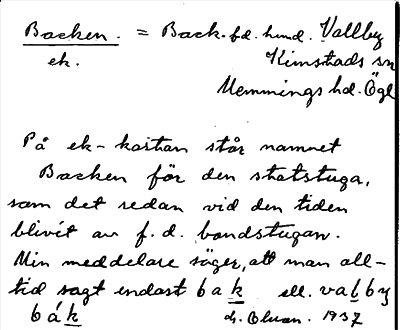 Backen. = Back. fd. hmd. Vallby
ek. Kimstads sn
Memmings hd. Ögl
På ek-kartan står namnet
Backen för den statstuga,
som det redan vid den tiden
blivit av f. d. bondstugan.
Min meddelare säger, att man all-
tid sagt endast bak ell. valby
bák 1937